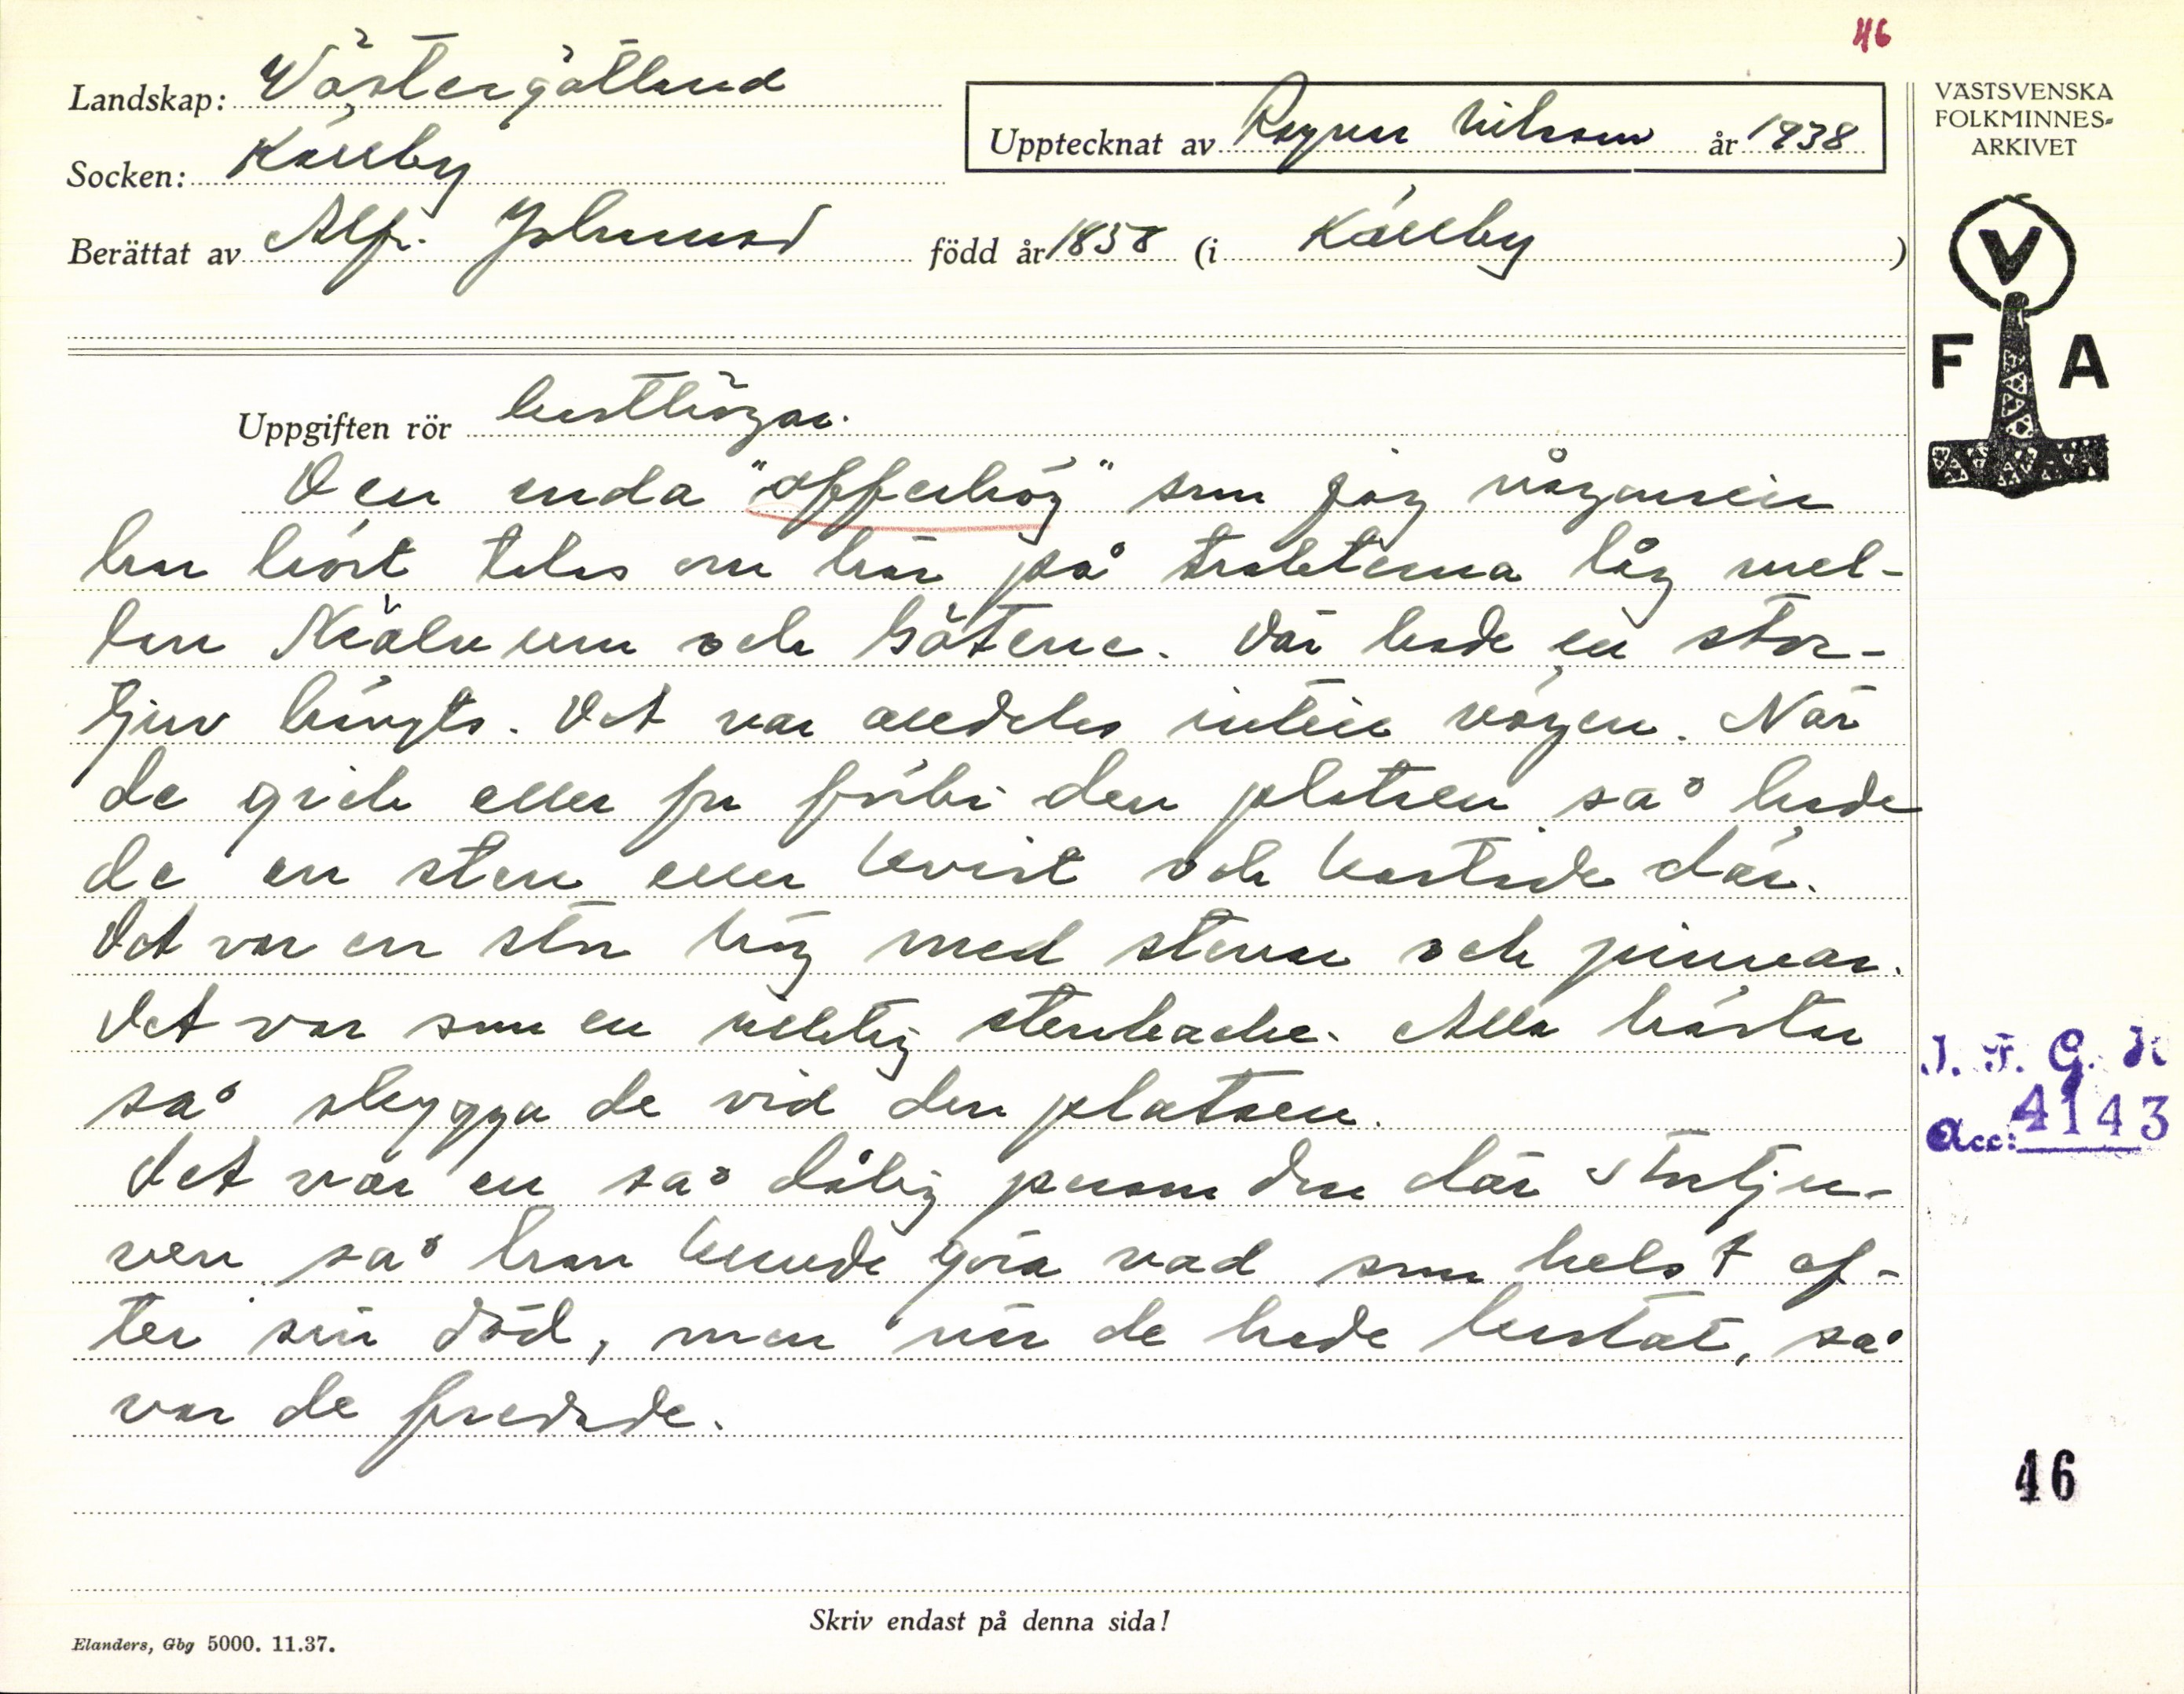 46
Landskap: Västergötland
Socken: Källby
Berättat av Alfr. Johansson född år 1858 (i Källby)
Upptecknat av Ragnar Nilsson år 1938
VÄSTSVENSKA
FOLKMINNES-
ARKIVET
V
F A
Uppgiften rör kasthögar.
Den enda "offerhög" som jag någonsin
har hört talas om här på trakterna låg mel-
lan Skälvum och Götene. Där hade en stor-
tjuv hängts. Det var alldeles intill vägen. När
de gick eller for förbi den platsen så hade
de en sten eller kvist och kastade där.
Det var en stor hög med stenar och pinnar.
Det var som en riktig stenbacke. Alla hästar
så skygga de vid den platsen.
Det var en så dålig person den där stortju-
ven så han kunde göra vad som helst ef-
ter sin död, men när de hade kastat, så
var de fredade.
I. F. G. H
Acc: 4143
46
Skriv endast på denna sida!
Elanders, Gbg 5000. 11.37.